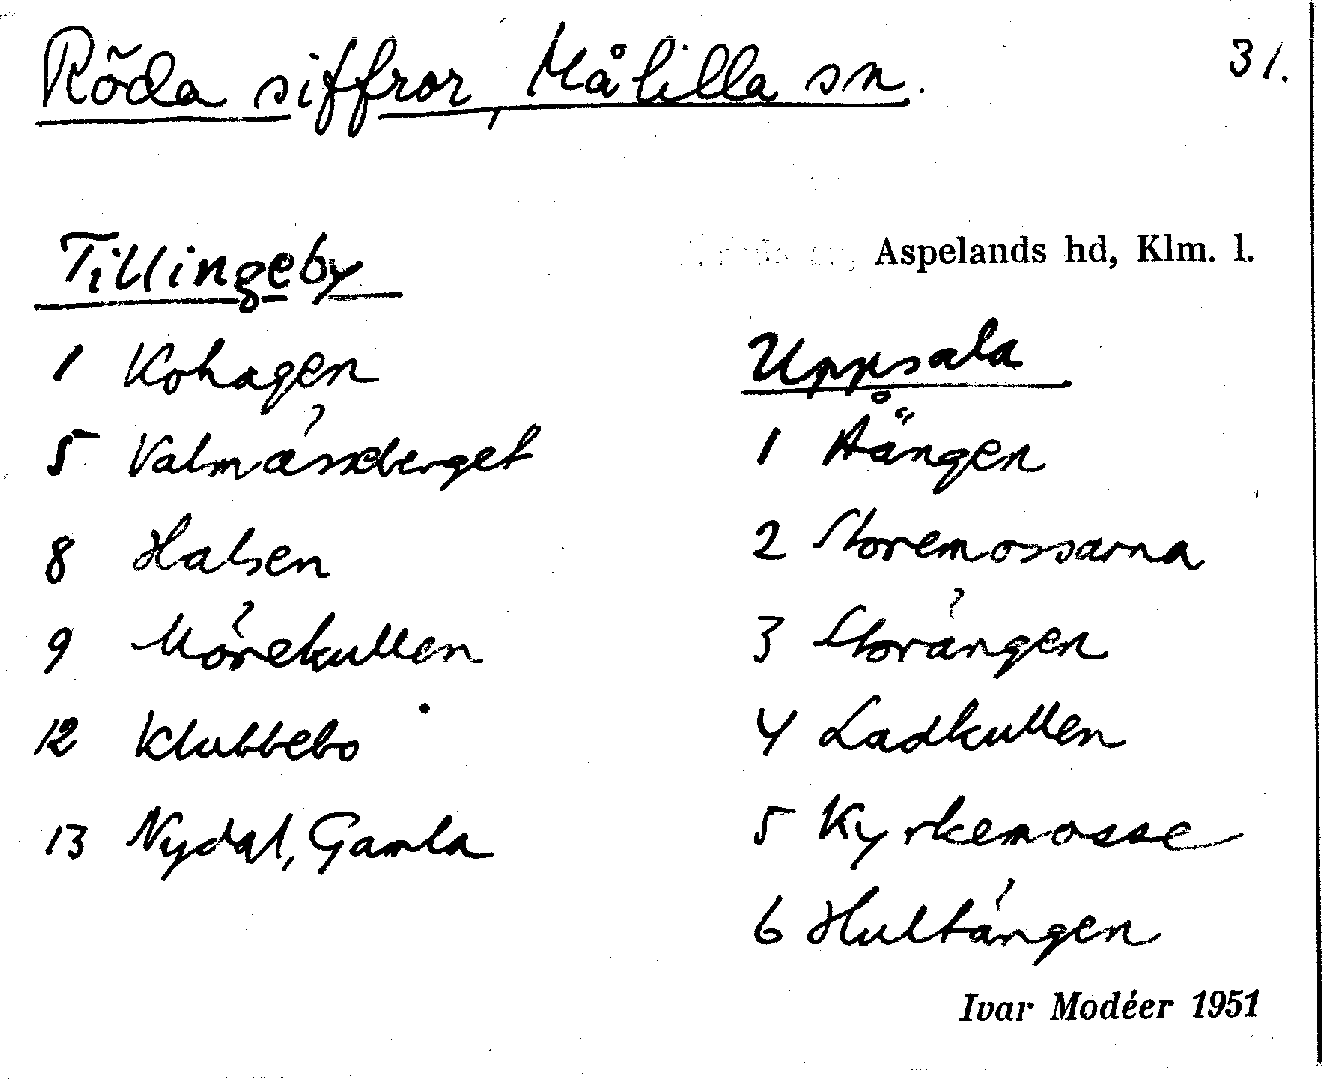 Röda siffror, Målilla sn.
31.
Tillingeby
1 Kohagen
5 Valmåsxberget
8 Halsen
9 Mörekullen
12 Klubbebo
13 Nydal, Gamla
Aspelands hd, Klm. l.
Uppsala
1 Åängen
2 Storemossarna
3 Storängen
4 Ladkullen
5 Kyrkemosse
6 Hultängen
Ivar Modéer 1951